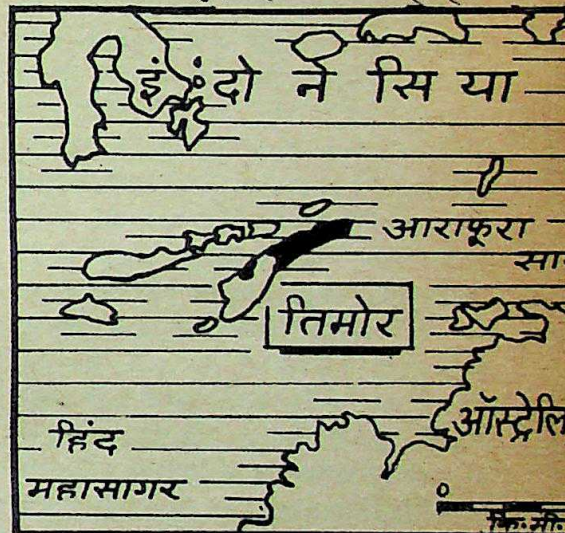 इंदोनेसिया
आराफूरा
सा
तिमोर
ऑस्ट्रेलि
हिंद
महासागर
0
कि.मी.